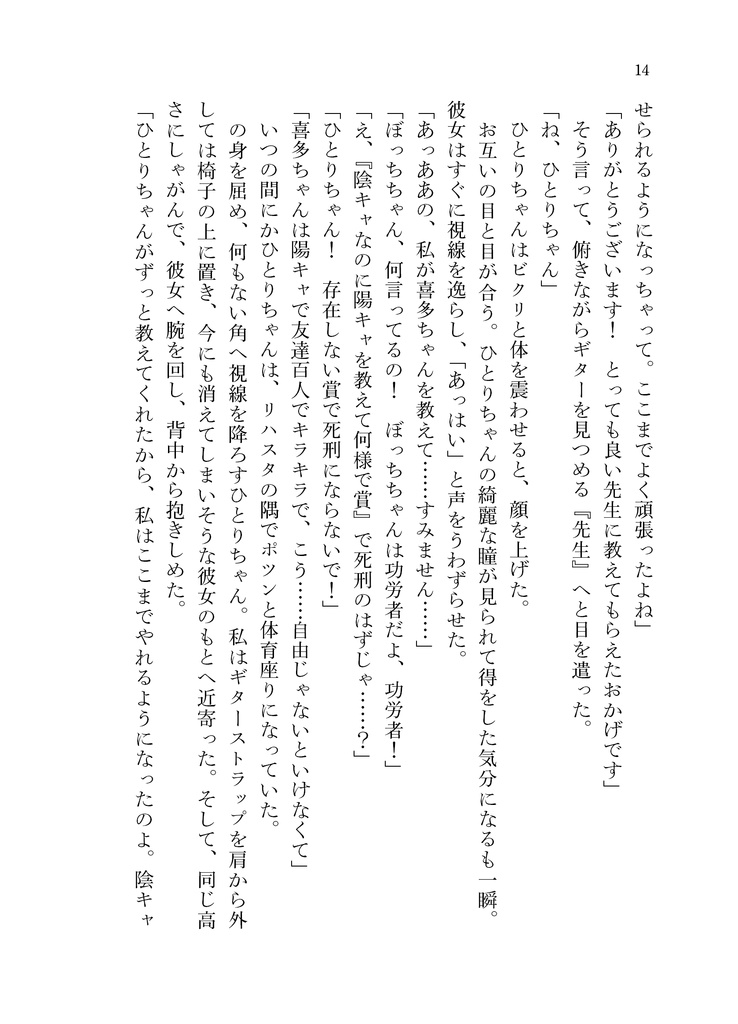 14
せられるようになっちゃって。ここまでよく頑張ったよね」
「ありがとうございます！　とっても良い先生に教えてもらえたおかげです」
そう言って、俯きながらギターを見つめる『先生』へと目を遣った。
「ね、ひとりちゃん」
ひとりちゃんはビクリと体を震わせると、顔を上げた。
お互いの目と目が合う。ひとりちゃんの綺麗な瞳が見られて得をした気分になるも一瞬。
彼女はすぐに視線を逸らし、「あっはい」と声をうわずらせた。
「あっああの、私が喜多ちゃんを教えて……すみません……」
「ぼっちちゃん、何言ってるの！　ぼっちちゃんは功労者だよ、功労者！」
「え、『陰キャなのに陽キャを教えて何様で賞』で死刑のはずじゃ……？」
「ひとりちゃん！　存在しない賞で死刑にならないで！」
「喜多ちゃんは陽キャで友達百人でキラキラで、こう……自由じゃないといけなくて」
いつの間にかひとりちゃんは、リハスタの隅でポツンと体育座りになっていた。
の身を屈め、何もない角へ視線を降ろすひとりちゃん。私はギターストラップを肩から外
しては椅子の上に置き、今にも消えてしまいそうな彼女のもとへ近寄った。そして、同じ高
さにしゃがんで、彼女へ腕を回し、背中から抱きしめた。
「ひとりちゃんがずっと教えてくれたから、私はここまでやれるようになったのよ。陰キャ